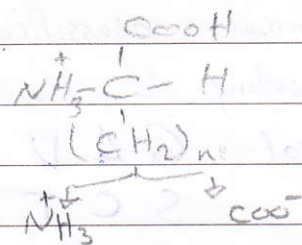 COOH
+
NH3-C-H
(CH2)n
+
NH3 COO-